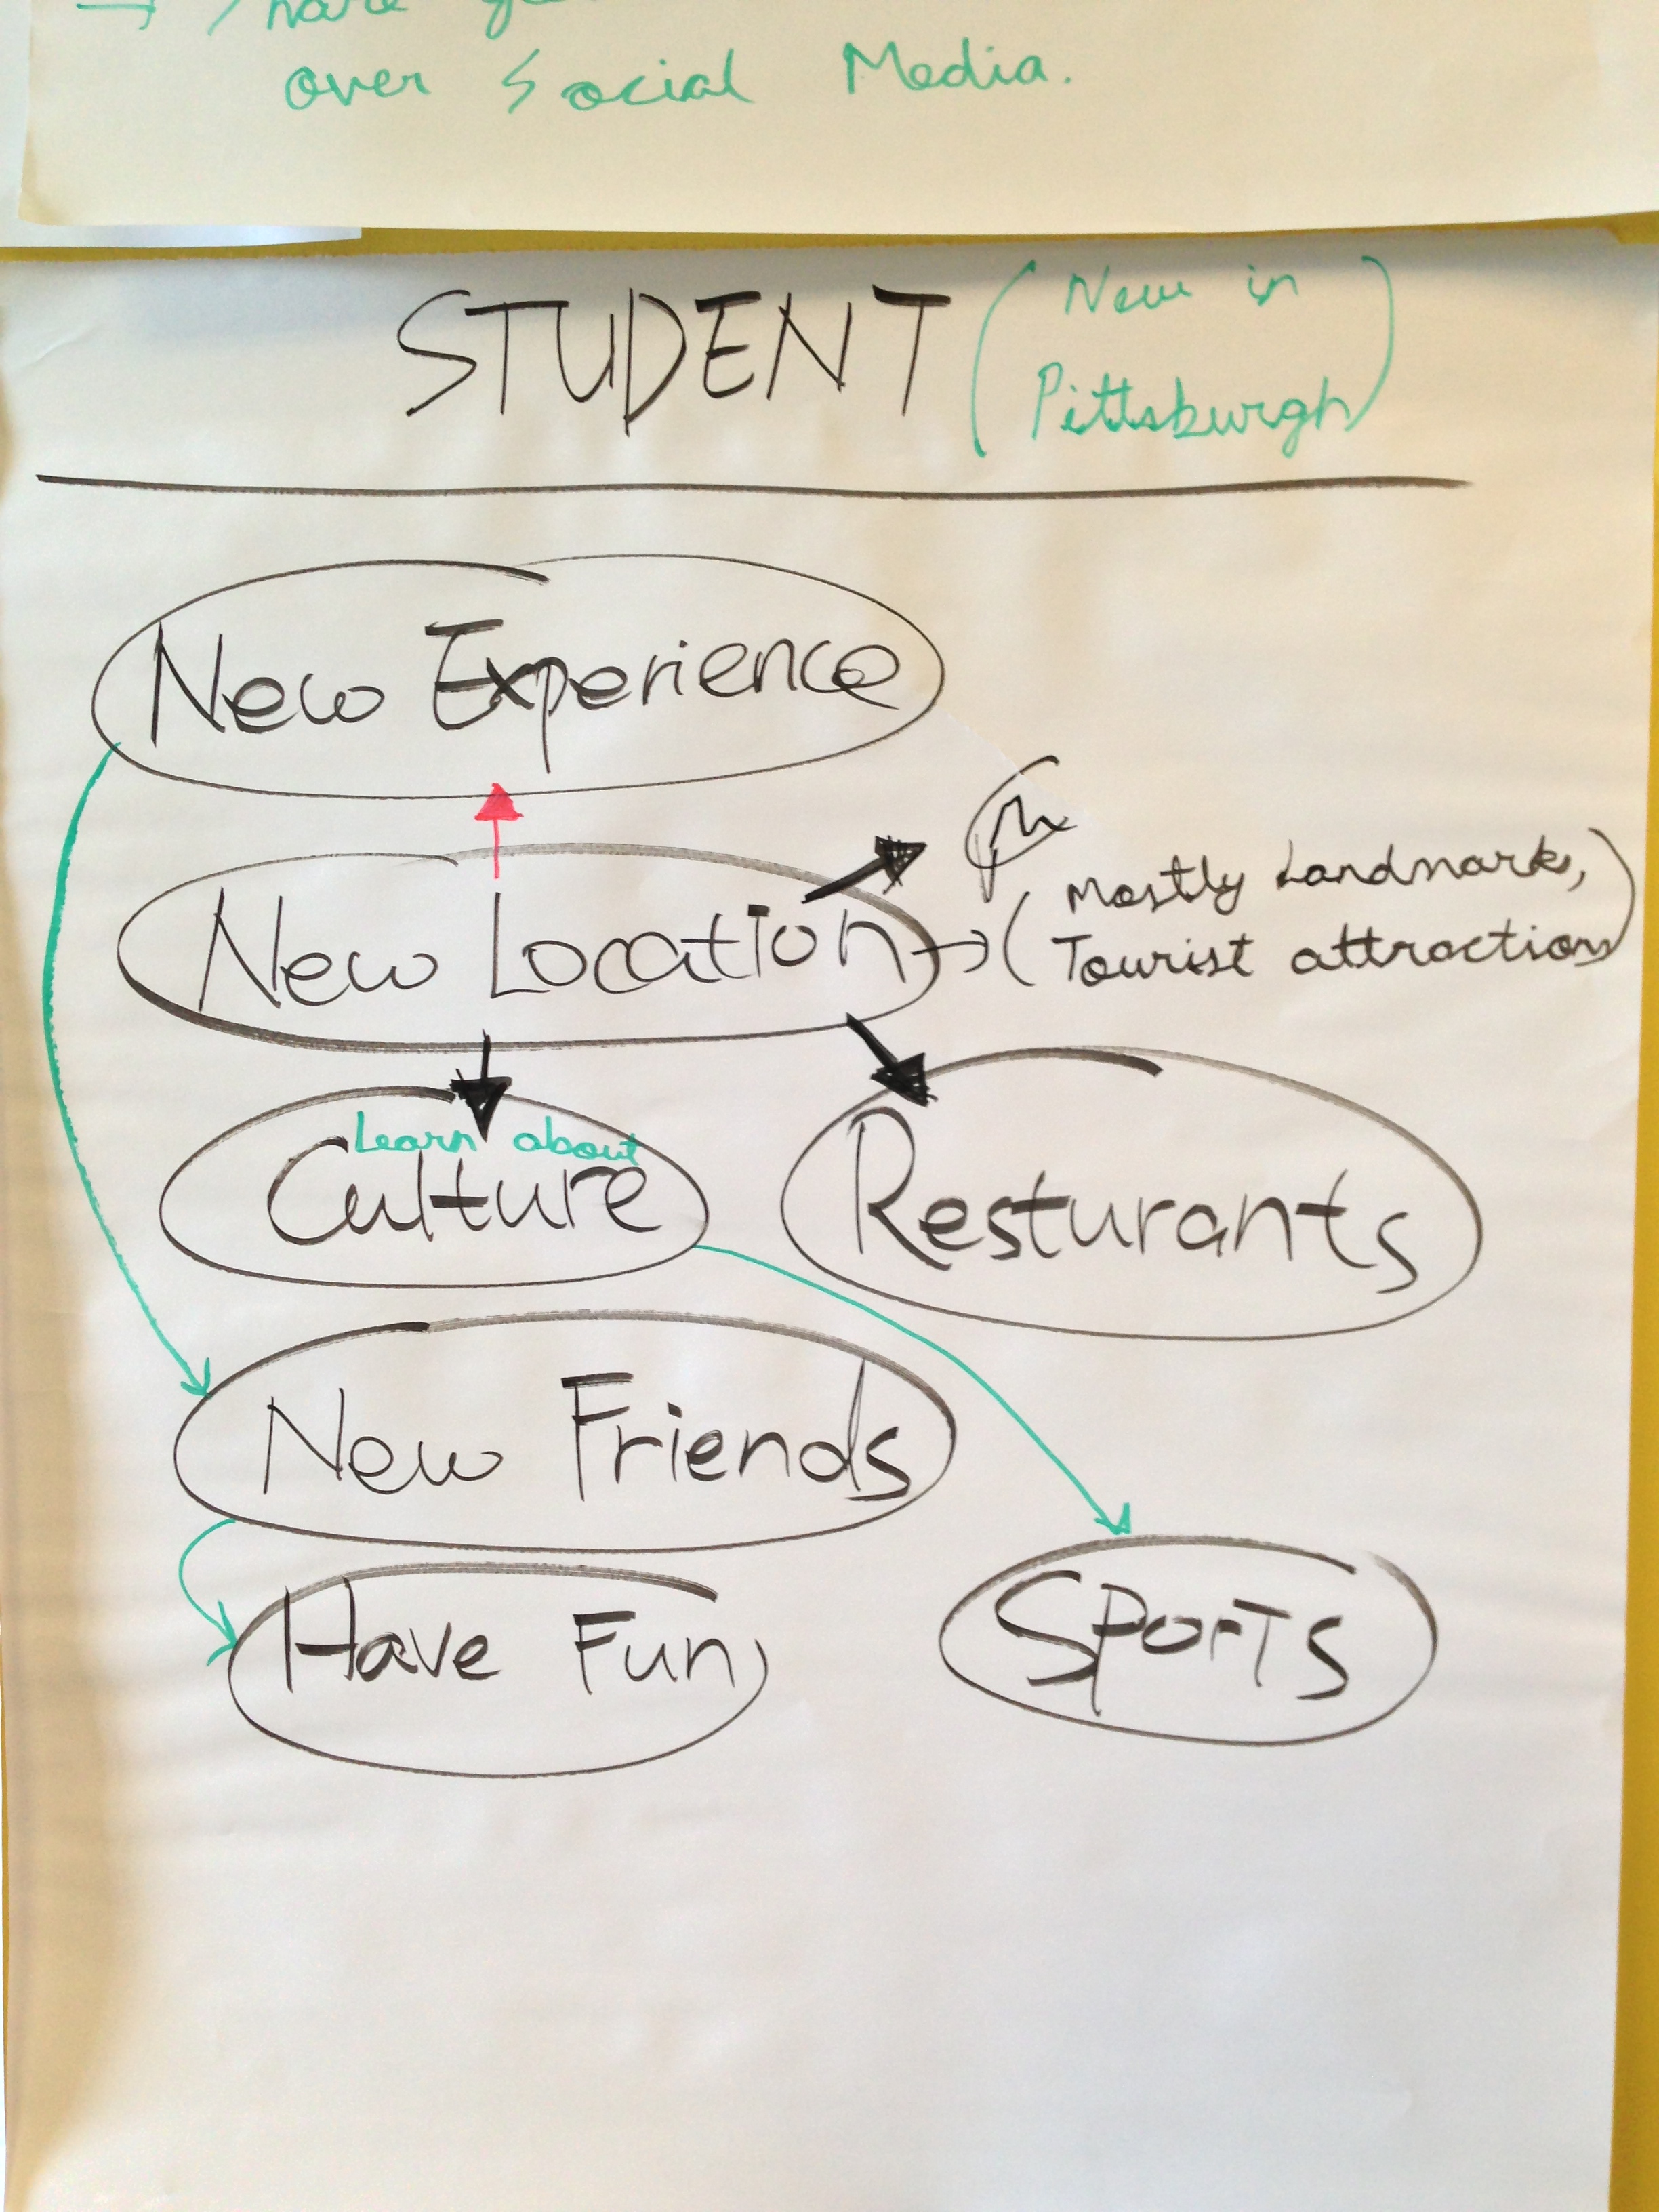 over Social Media.
STUDENT (New in
Pittsburgh)
New Experience
New Location → (Mostly Landmarks,
Tourist attractions)
Learn about
Culture
Resturants
New Friends
Have Fun
Sports